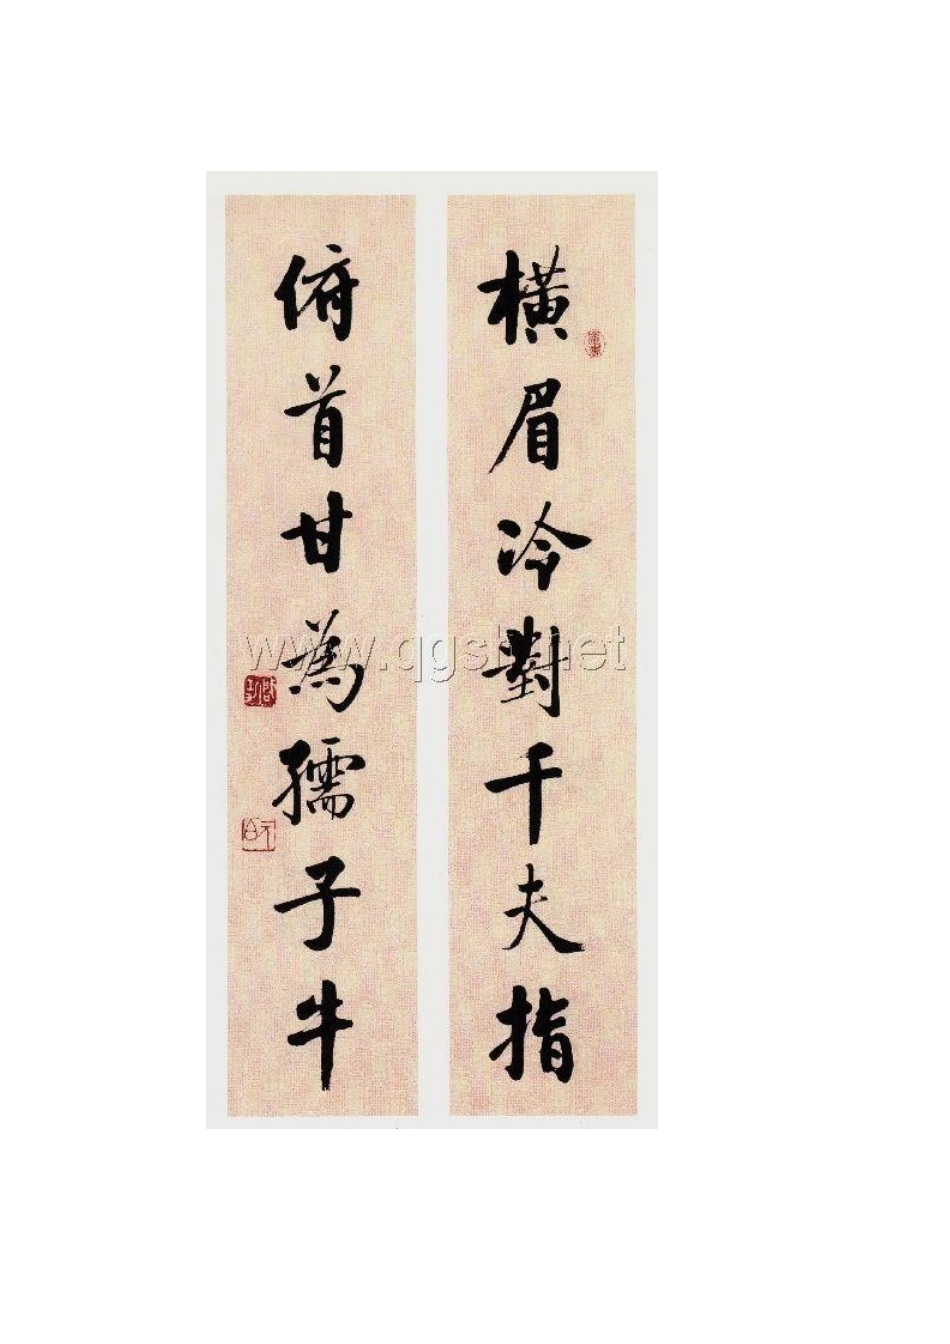 橫眉冷對千夫指
俯首甘為孺子牛
www.qgsh.net